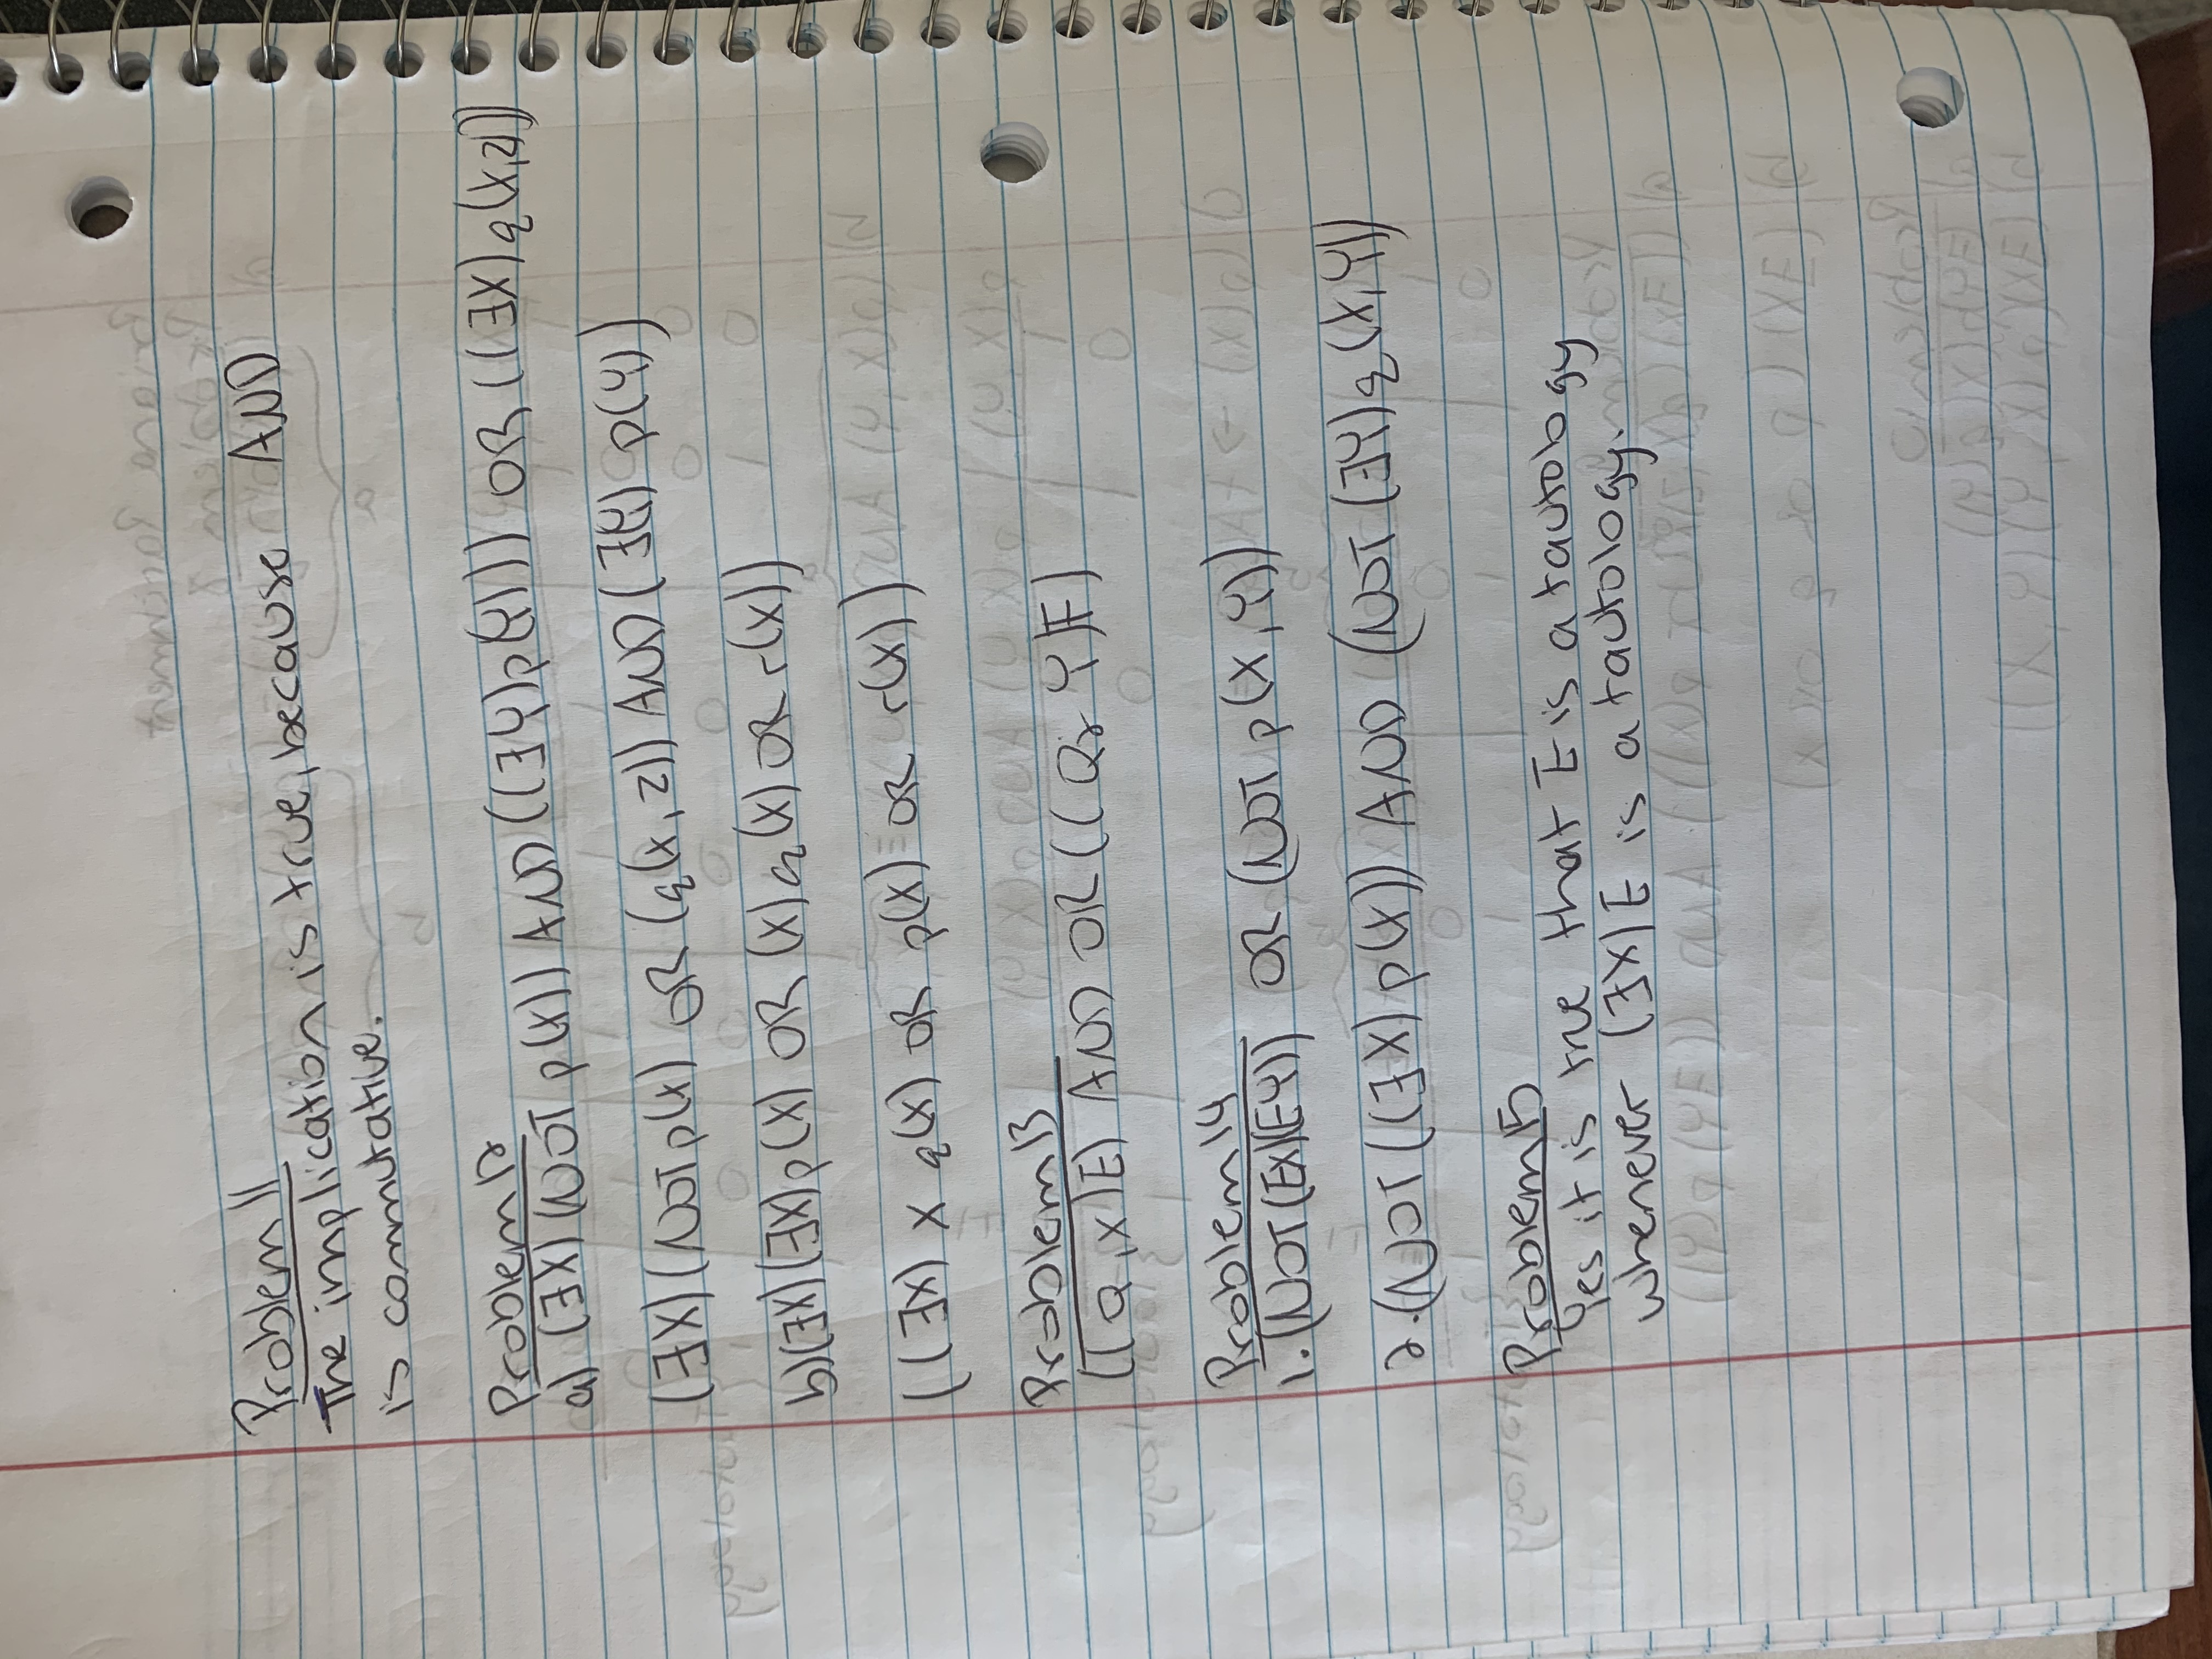 Problem 11
The implication is true, because AND
is commutative.
Problem 12
a) (∃X)(NOT p(X)) AND ((∃Y)p(Y))) OR ((∃X) q(X,Z))
(∃X)(NOT p(X) OR (q(X, Z)) AND (∃(Y) p(Y))
b)(∃X)(∃X)p(X) OR (X)q(X) OR r(X))
((∃X) X q(X) OR p(X) OR r(X))
Problem 13
((Q,X)E) AND OR ((Q2 Y)F)
Problem 14
1. (NOT(EX)(EY)) OR (NOT p(X,Y))
2. (NOT((∃X) p(X)) AND (NOT (∃Y) q(X,Y))
Problem 15
Yes it is true that E is a tautology
whenever (∃X)E is a tautology.